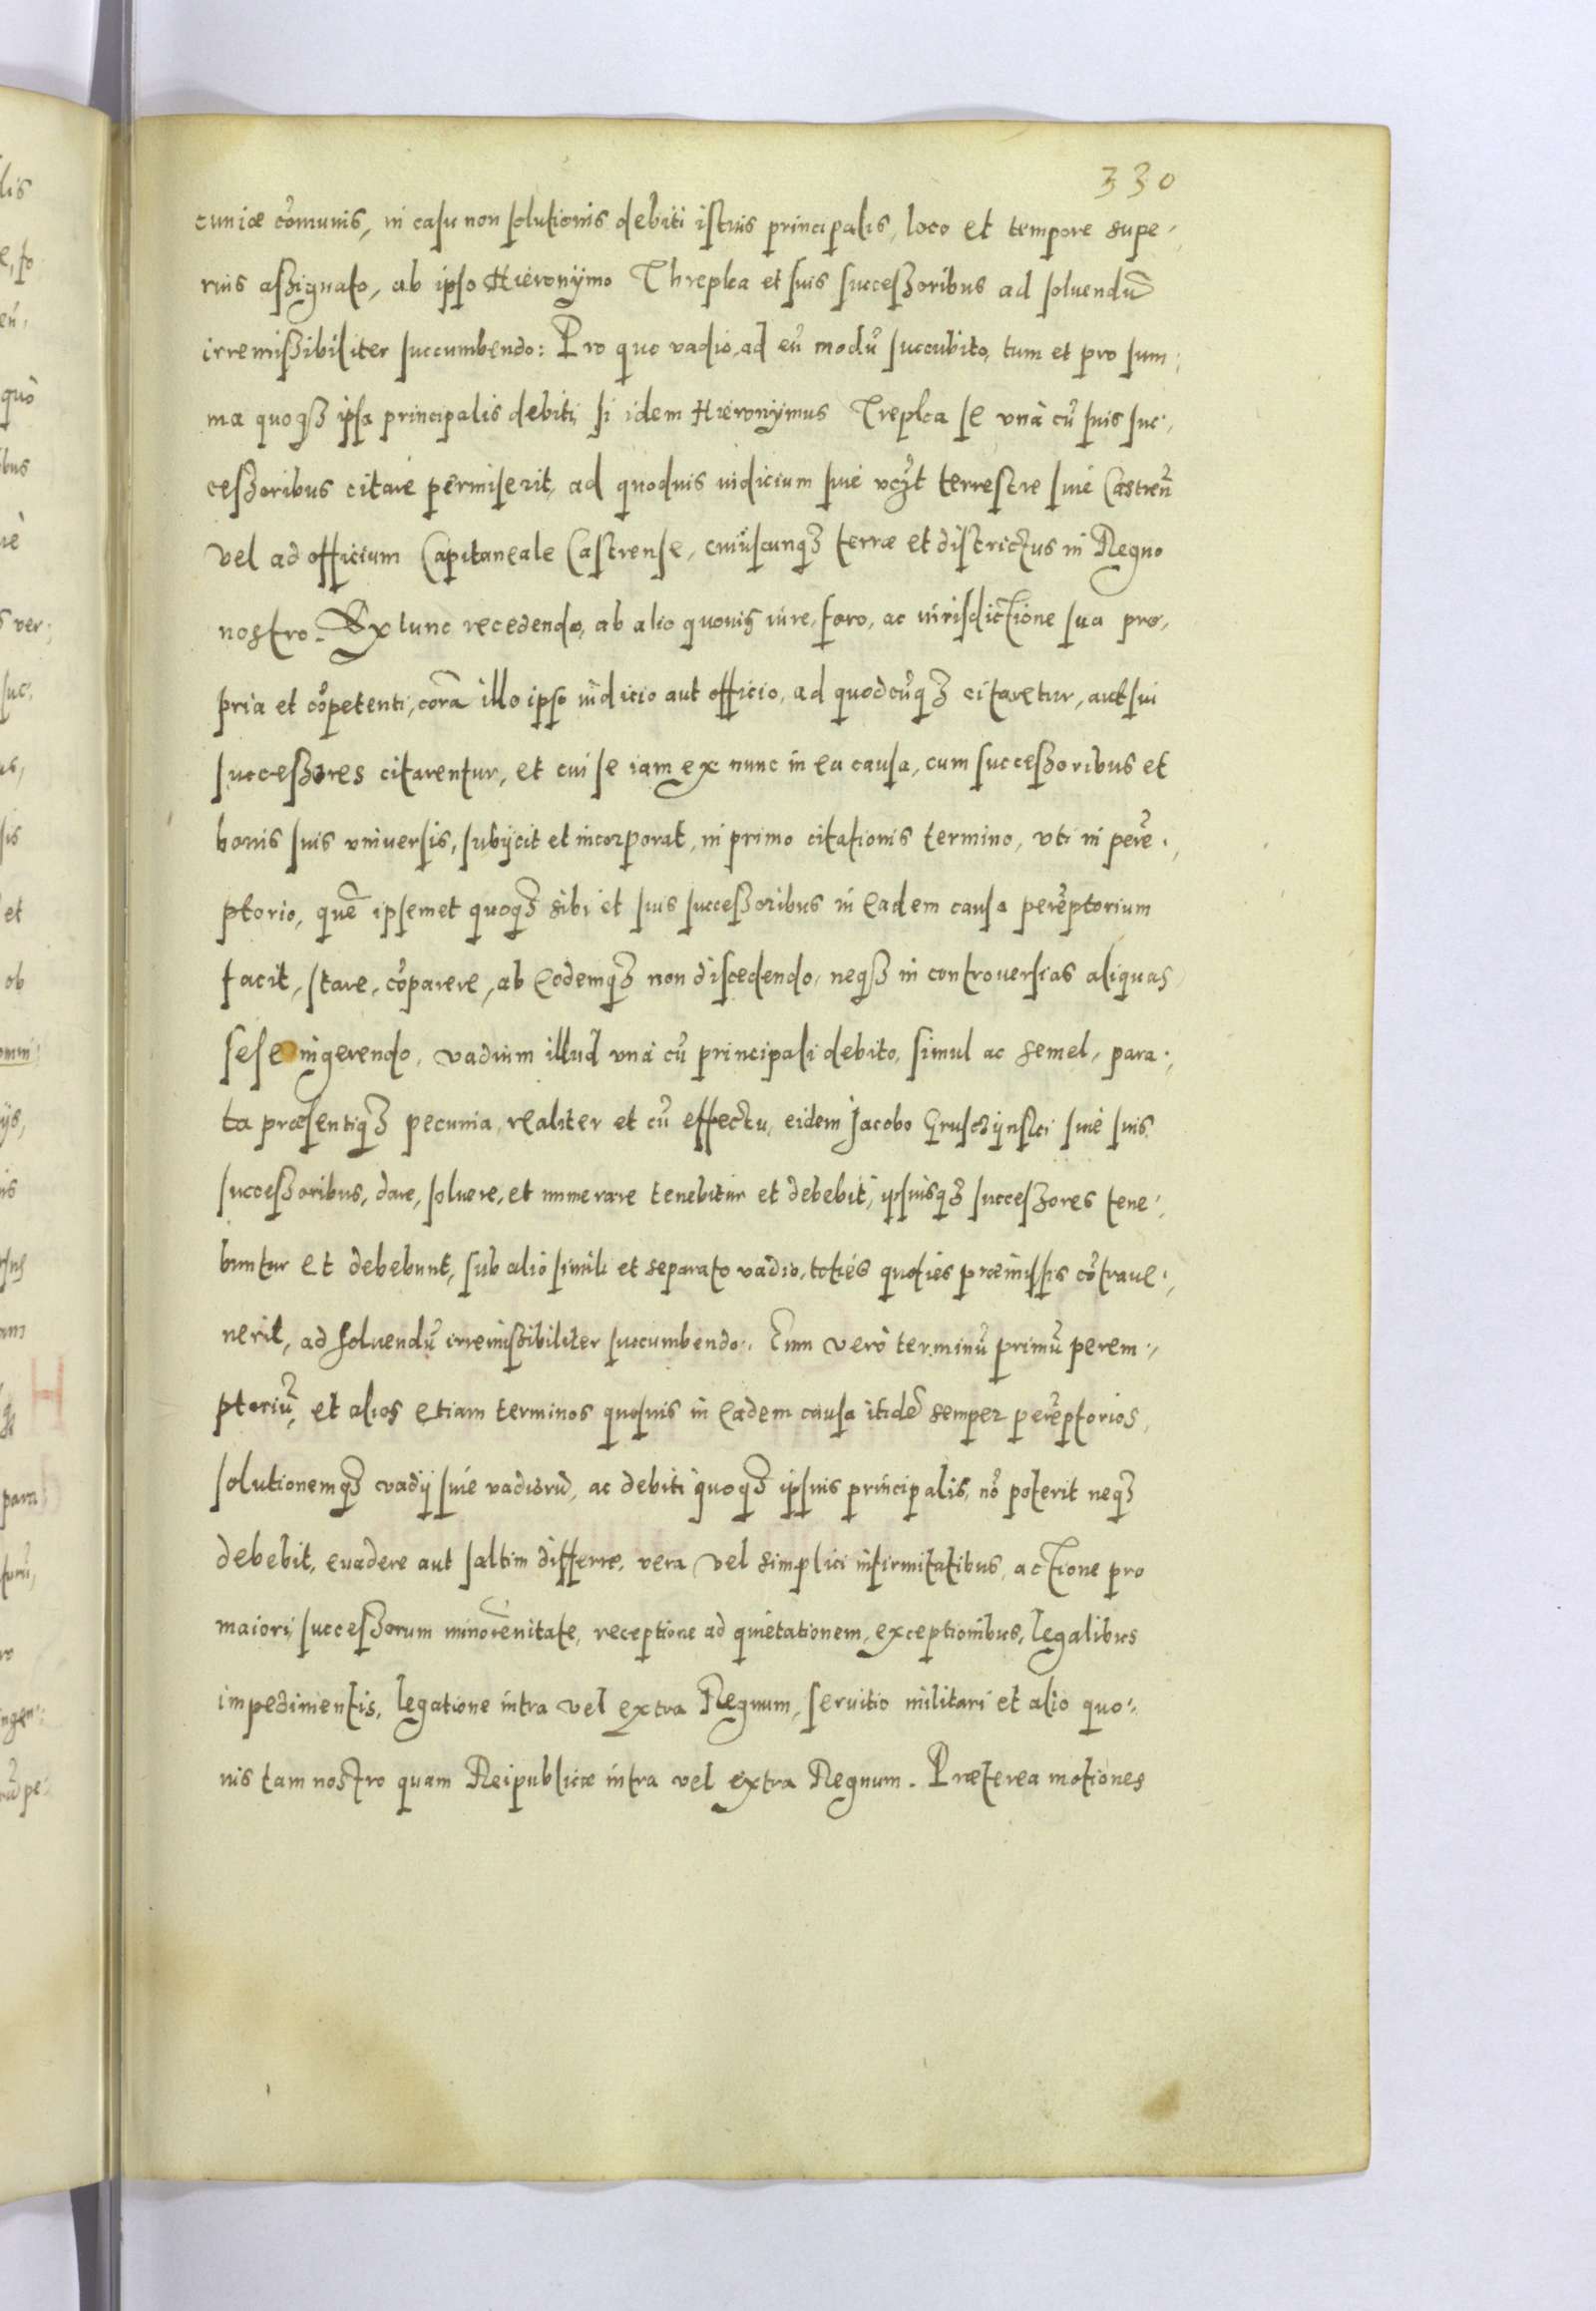 330
cuniæ cõmunis, in casu non solutionis debiti istius principalis, loco et tempore supe-
rius assignato, ab ipso Hieronÿmo Threpka et suis successoribus ad soluendũ
irremissibiliter succumbendo: Pro quo vadio, ad eũ modũ succubito, tum et pro sum-
ma quoqꝫ ipsa principalis debiti, si idem Hieronÿmus Trepka se vnà cũ suis suc-
cessoribus citare permiserit, ad quoduis iudicium siue terrestre siue Castreñ
vel ad officium Capitaneale Castrense, cuiuscunqꝫ terræ et districtus in Regno
nostro. Ex tunc recedendo, ab alio quouis iure, foro, ac iurisdictione sua pro-
pria et cõpetenti, corã illo ipso iudicio aut officio, ad quodcũqꝫ citaretur, aut sui
successores citarentur, et cui se iam ex nunc in ea causa, cum successoribus et
bonis suis vniuersis, subÿcit et incorporat, in primo citationis termino, vti in perẽ-
ptorio, quẽ ipsemet quoqꝫ sibi et suis successoribus in eadem causa perẽptorium
facit, stare, cõparere, ab eodemqꝫ non discedendo, neqꝫ in controuersias aliquas
sese ingerendo, vadium illud vnà cũ principali debito, simul ac semel, para-
ta præsentiqꝫ pecunia, realiter et cũ effectu, eidem Jacobo Gruszÿnski siue suis
successoribus, dare, soluere, et numerare tenebitur et debebit, ipsiusqꝫ successores tene-
buntur et debebunt, sub alio simili et separato vadio, toties quoties præmissis cõtraue-
nerit, ad soluendũ irremissibiliter succumbendo. Eum verò terminũ primũ perem-
ptoriũ, et alios etiam terminos quosuis in eadem causa itidẽ semper perẽptorios,
solutionemqꝫ vadÿ siue vadiorũ, ac debiti quoqꝫ ipsius principalis, nõ poterit neqꝫ
debebit, euadere aut saltim differre, vera vel simplici infirmitatibus, actione pro
maiori, successorum minorẽnitate, receptione ad quietationem, exceptionibus, legalibus
impedimentis, legatione intra vel extra Regnum, seruitio militari et alio quo-
uis tam nostro quam Reipublicæ intra vel extra Regnum. Præterea motiones